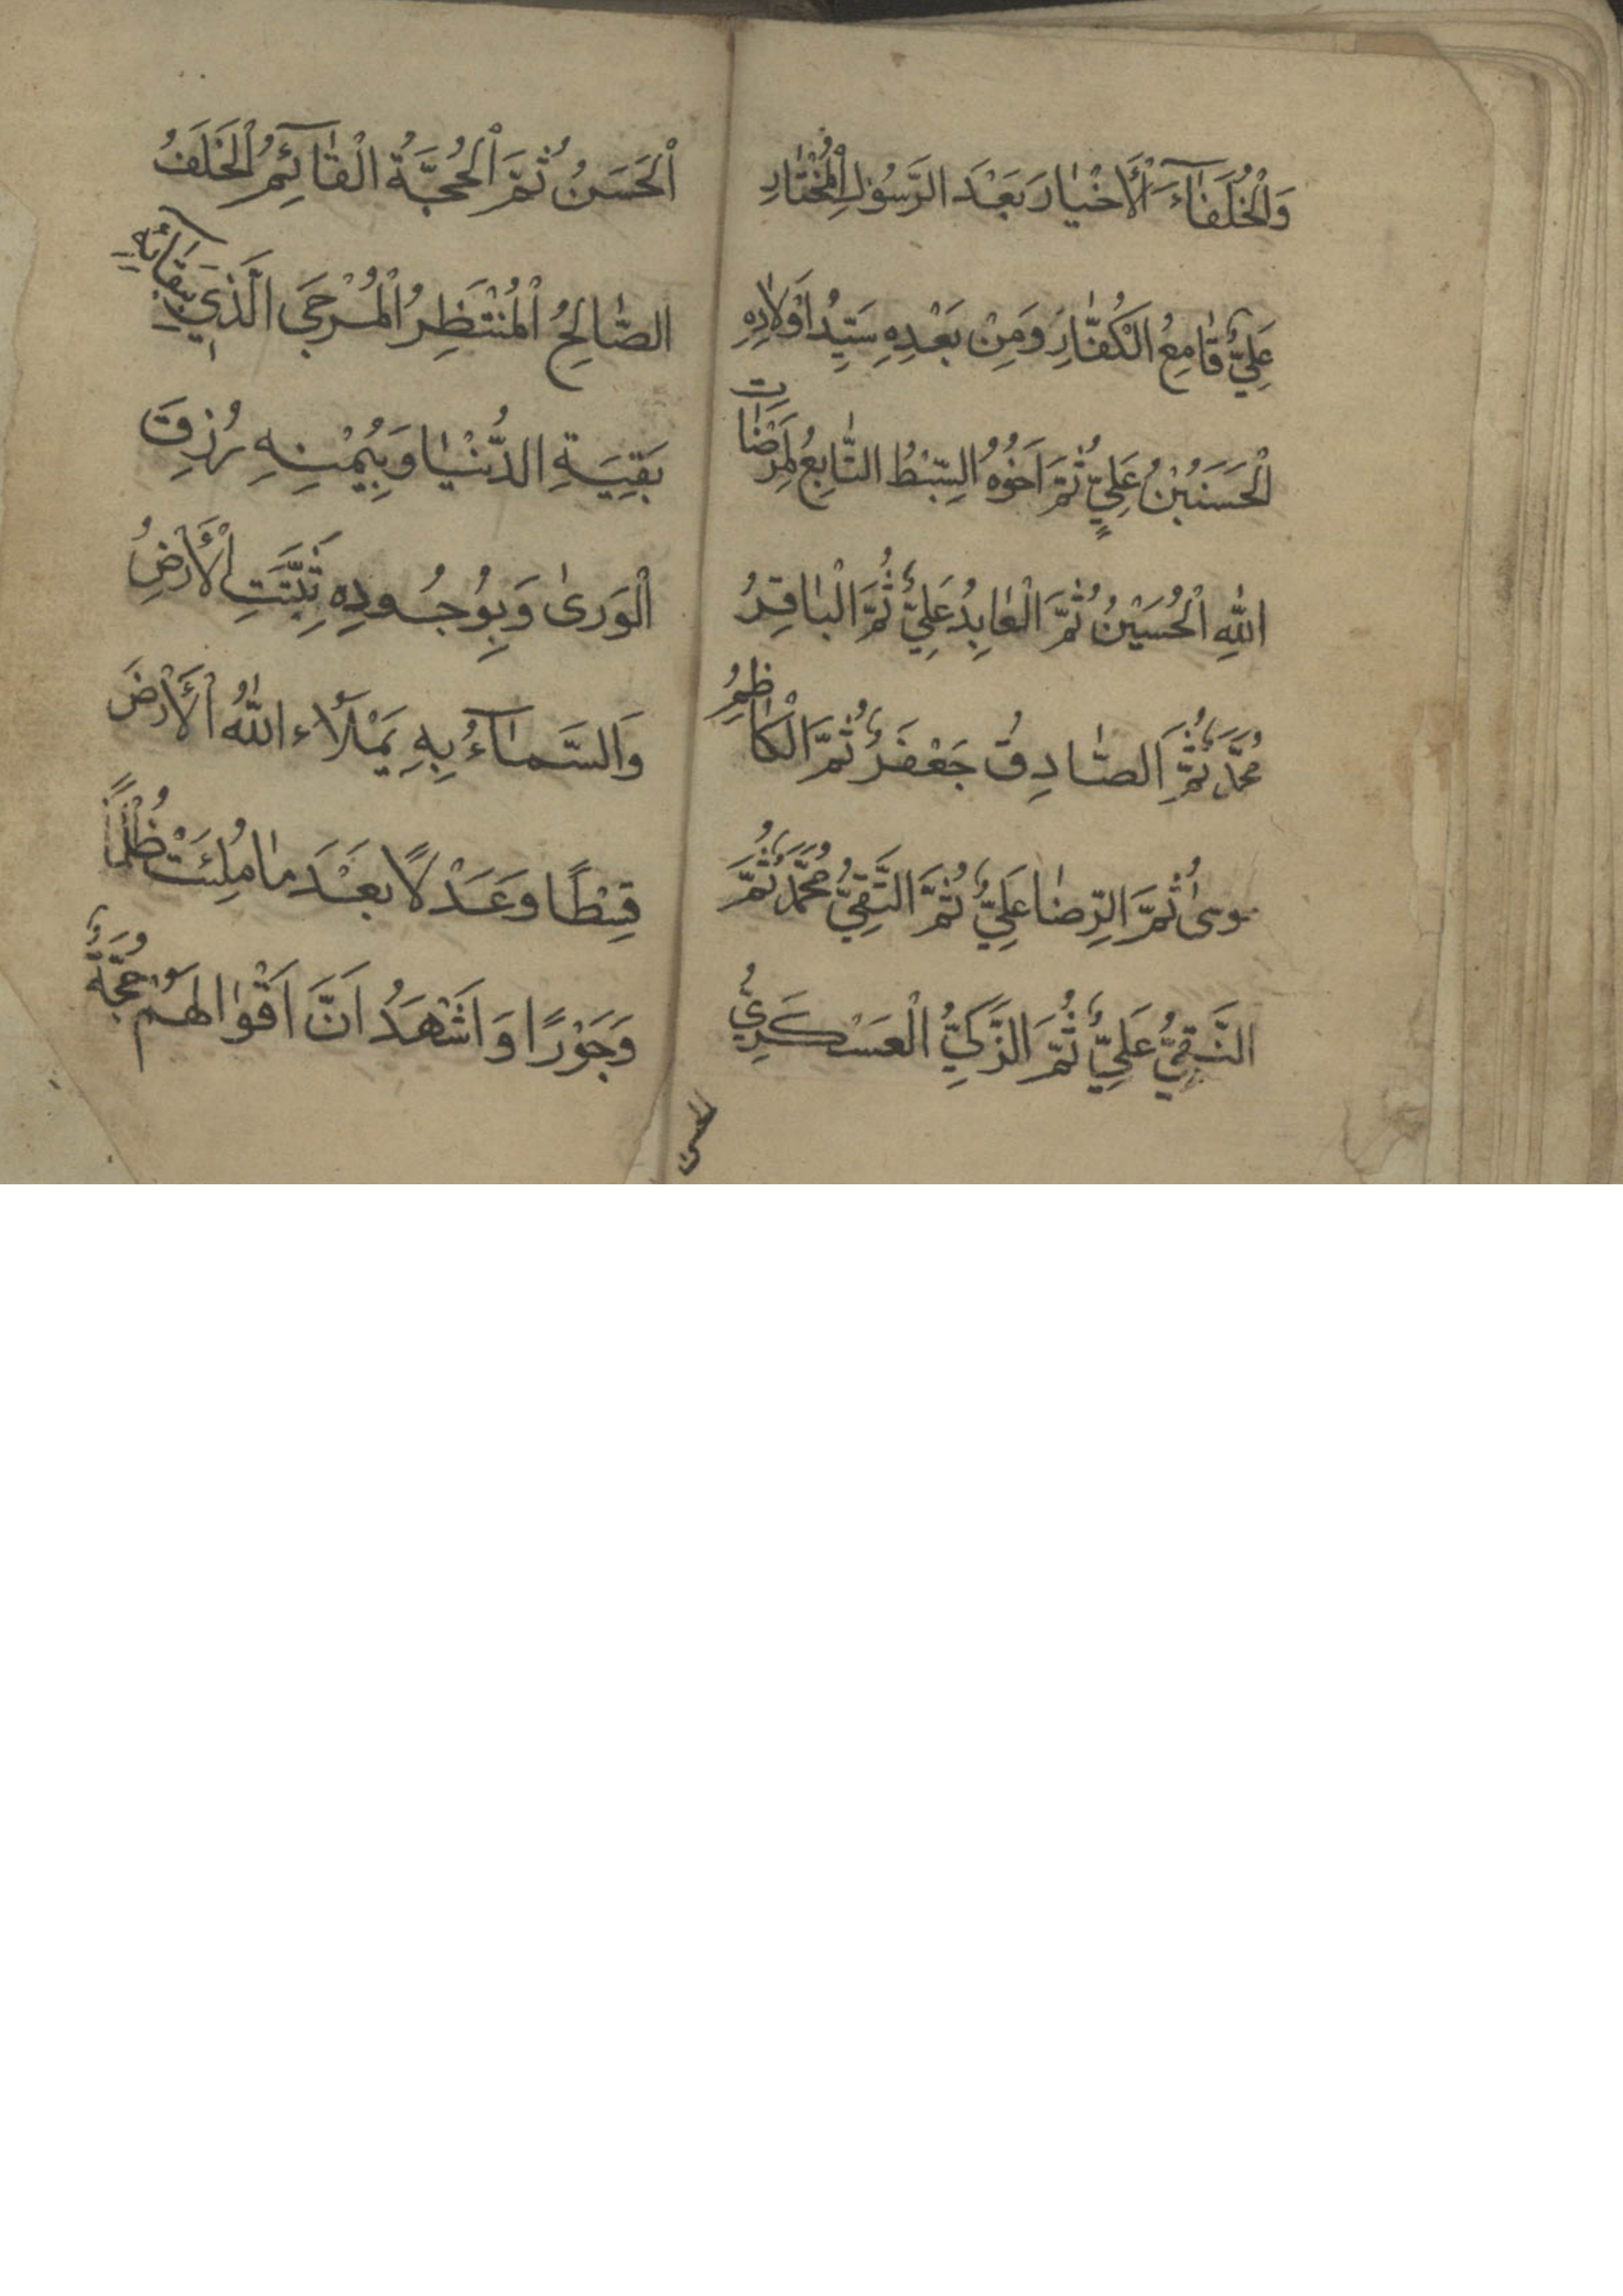 وَالْخُلَفَآءَ الْأَخْيَارَ بَعْدَ الرَّسُولِ الْمُخْتَارِ
عَلِيٌّ قَامِعُ الْكُفَّارِ وَمِنْ بَعْدِهِ سَيِّدُ اَوْلَادِهِ
الْحَسَنُ بْنُ عَلِيٍّ ثُمَّ اَخُوهُ السِّبْطُ التَّابِعُ لِمَرْضَاتِ
اللّٰهِ الْحُسَيْنُ ثُمَّ الْعَابِدُ عَلِيٌّ ثُمَّ الْبَاقِرُ
مُحَمَّدٌ ثُمَّ الصَّادِقُ جَعْفَرٌ ثُمَّ الْكَاظِمُ
مُوسىٰ ثُمَّ الرِّضَا عَلِيٌّ ثُمَّ التَّقِيُّ مُحَمَّدٌ ثُمَّ
النَّقِيُّ عَلِيٌّ ثُمَّ الزَّكِيُّ الْعَسْكَرِيُّ
الحسن
اَلْحَسَنُ ثُمَّ الْحُجَّةُ الْقَآئِمُ الْخَلَفُ
الصَّالِحُ الْمُنْتَظَرُ الْمُرْجَى الَّذِي بِبَقَآئِهِ
بَقِيَةِ الدُّنْيَا وَبِيُمْنِهِ رُزِقَ
الْوَرىٰ وَبِوُجُودِهِ ثَبَتَتِ الْأَرْضُ
وَالسَّمَآءُ بِهِ يَمْلَاءُ اللّٰهُ الْأَرْضَ
قِسْطًا وَعَدْلًا بَعْدَ مَا مُلِئَتْ ظُلْمًا
وَجَوْرًا وَاَشْهَدُ اَنَّ اَقْوَالَهُمْ حُجَّةٌ